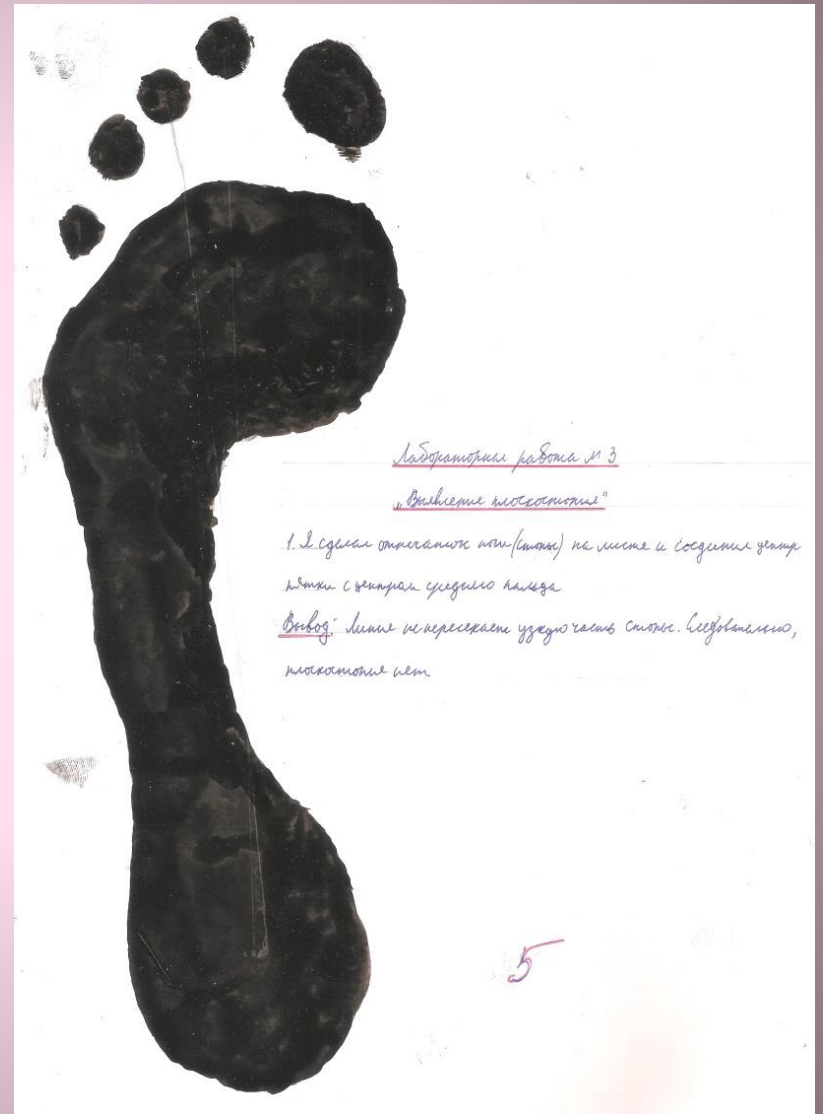 Лабораторная работа № 3
„Выявление плоскостопия"
1. Я сделал отпечаток ноги (стопы) на листе и соединил центр
пятки с центром среднего пальца
Вывод: Линия не пересекает узкую часть стопы. Следовательно,
плоскостопия нет
5